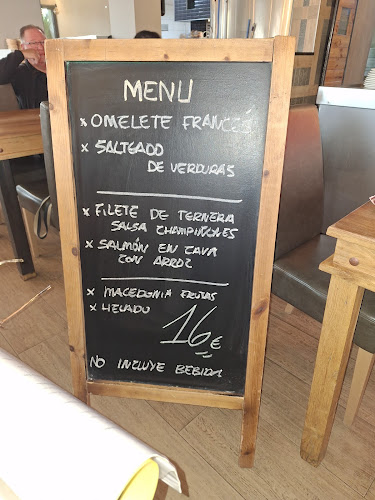 MENU
x OMELETE FRANCÉS
x SALTEADO
DE VERDURAS
x FILETE DE TERNERA
SALSA CHAMPIÑONES
x SALMÓN EN CAVA
CON ARROZ
x MACEDONIA FRUTAS
x HELADO
16€
NO INCLUYE BEBIDA